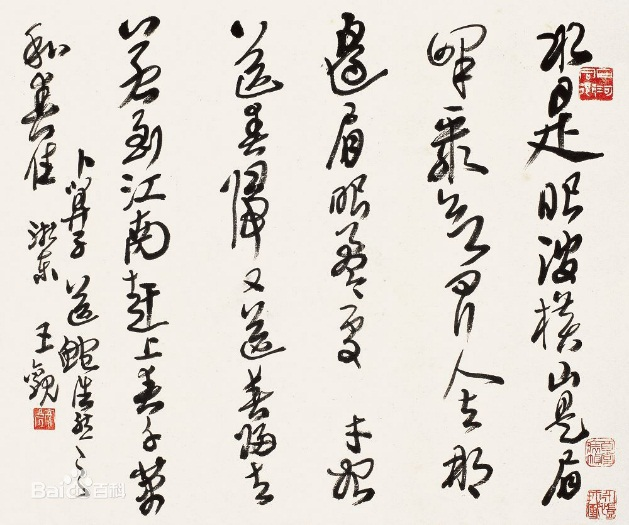 水是眼波横山是眉
峰聚欲问行人去那
邊眉眼盈盈處 才始
送春歸又送君歸去
若到江南赶上春千萬
和春住
卜算子 送鲍浩然之
浙东 王觀
Baidu百科